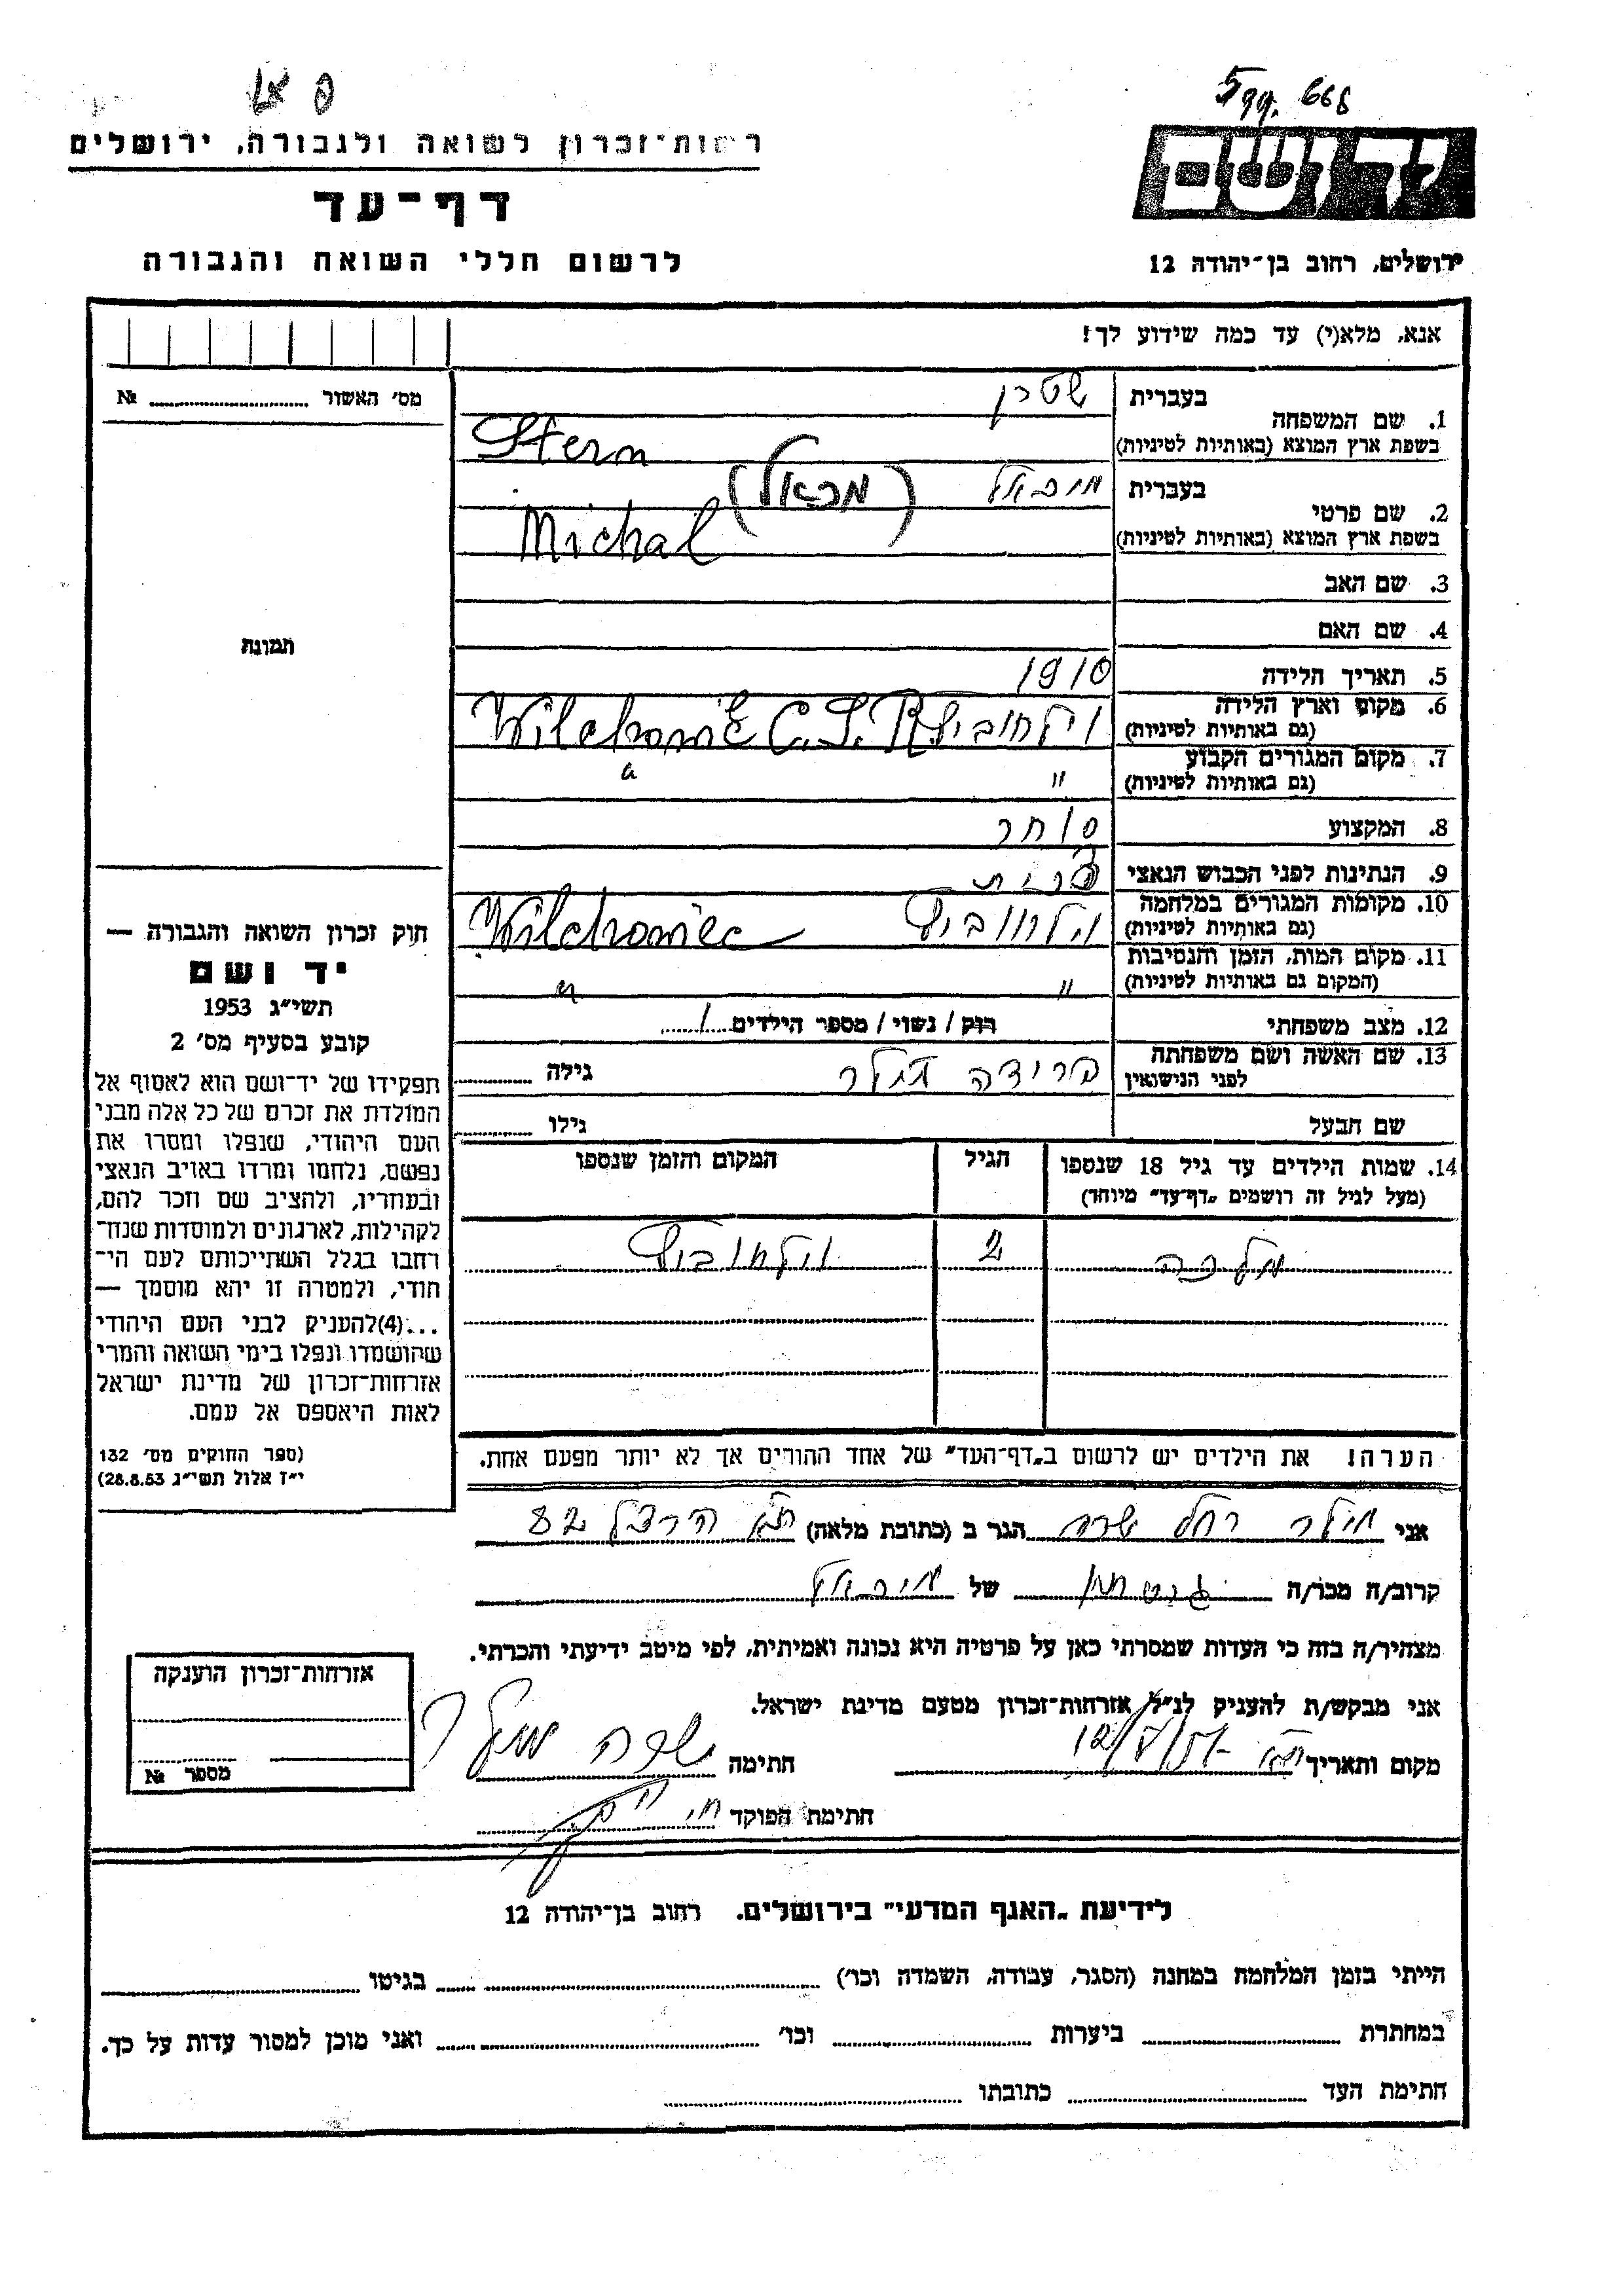 599. 668
רשות־זכרון לשואה ולגבורה, ירושלים
דף־עד
לרשום חללי השואה והגבורה
יד ושם
ירושלים, רחוב בן־יהודה 12
אנא, מלא(י) עד כמה שידוע לך!
מס׳ האשור ........ №
תמונה
1. שם המשפחה
בעברית שטרן
בשפת ארץ המוצא (באותיות לטיניות) Stern
2. שם פרטי
בעברית מיכאל (מכאל)
בשפת ארץ המוצא (באותיות לטיניות) Michal
3. שם האב
4. שם האם
5. תאריך הלידה 1910
6. מקום וארץ הלידה
(גם באותיות לטיניות) וילחוביץ Wilchowiec C.S.R.
7. מקום המגורים הקבוע
(גם באותיות לטיניות) " "
8. המקצוע סוחר
9. הנתינות לפני הכבוש הנאצי
10. מקומות המגורים במלחמה
(גם באותיות לטיניות) וילחוביץ Wilchowiec
11. מקום המות, הזמן והנסיבות
(המקום גם באותיות לטיניות) " "
12. מצב משפחתי רוק / נשוי / מספר הילדים 1
13. שם האשה ושם משפחתה
לפני הנישואין פרידה גילה
שם הבעל גילו
14. שמות הילדים עד גיל 18 שנספו
(מעל לגיל זה רושמים „דף־עד” מיוחד)
הגיל
המקום והזמן שנספו
מלכה 2 וילחוביץ
הערה! את הילדים יש לרשום ב„דף־העד” של אחד ההורים אך לא יותר מפעם אחת.
חוק זכרון השואה והגבורה —
יד ושם
תשי״ג 1953
קובע בסעיף מס׳ 2
תפקידו של יד־ושם הוא לאסוף אל
המולדת את זכרם של כל אלה מבני
העם היהודי, שנפלו ומסרו את
נפשם, נלחמו ומרדו באויב הנאצי
ובעוזריו, ולהציב שם וזכר להם,
לקהילות, לארגונים ולמוסדות שנח־
רבו בגלל השתייכותם לעם הי־
הודי, ולמטרה זו יהא מוסמך —
...(4) להעניק לבני העם היהודי
שהושמדו ונפלו בימי השואה והמרי
אזרחות־זכרון של מדינת ישראל
לאות היאספם אל עמם.
(ספר החוקים מס׳ 132
י״ז אלול תשי״ג 28.8.53)
אני מילר רחל שרה הגר ב (כתובת מלאה) ת״א הרצל 82
קרוב/ה מכר/ה של מיכאל
מצהיר/ה בזה כי העדות שמסרתי כאן על פרטיה היא נכונה ואמיתית, לפי מיטב ידיעתי והכרתי.
אני מבקש/ת להעניק לנ״ל אזרחות־זכרון מטעם מדינת ישראל.
מקום ותאריך ת״א חתימה שרה מילר
חתימת הפוקד
אזרחות־זכרון הוענקה
מספר №
לידיעת „האגף המדעי” בירושלים. רחוב בן־יהודה 12
הייתי בזמן המלחמה במחנה (הסגר, עבודה, השמדה וכו׳) בגיטו
במחתרת ביערות וכו׳ ואני מוכן למסור עדות על כך.
חתימת העד כתובתו